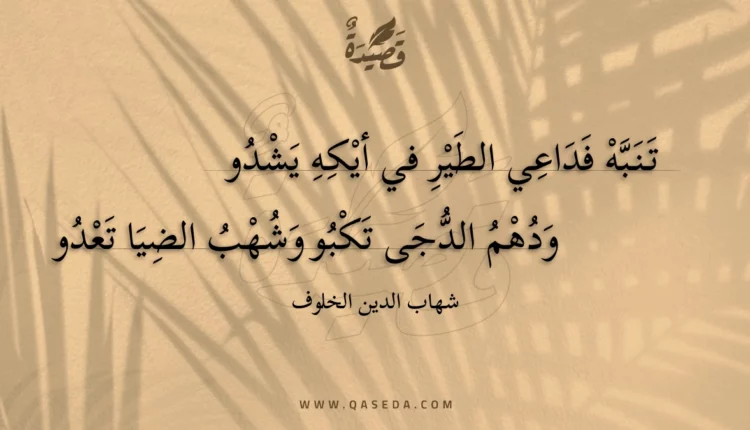 قَصِيْدَةٌ
تَنَبَّهْ فَدَاعِي الطَيْرِ في أيْكِهِ يَشْدُو
وَدُهْمُ الدُّجَى تَكْبُو وَشُهْبُ الضِيَا تَعْدُو
شهاب الدين الخلوف
WWW.QASEDA.COM